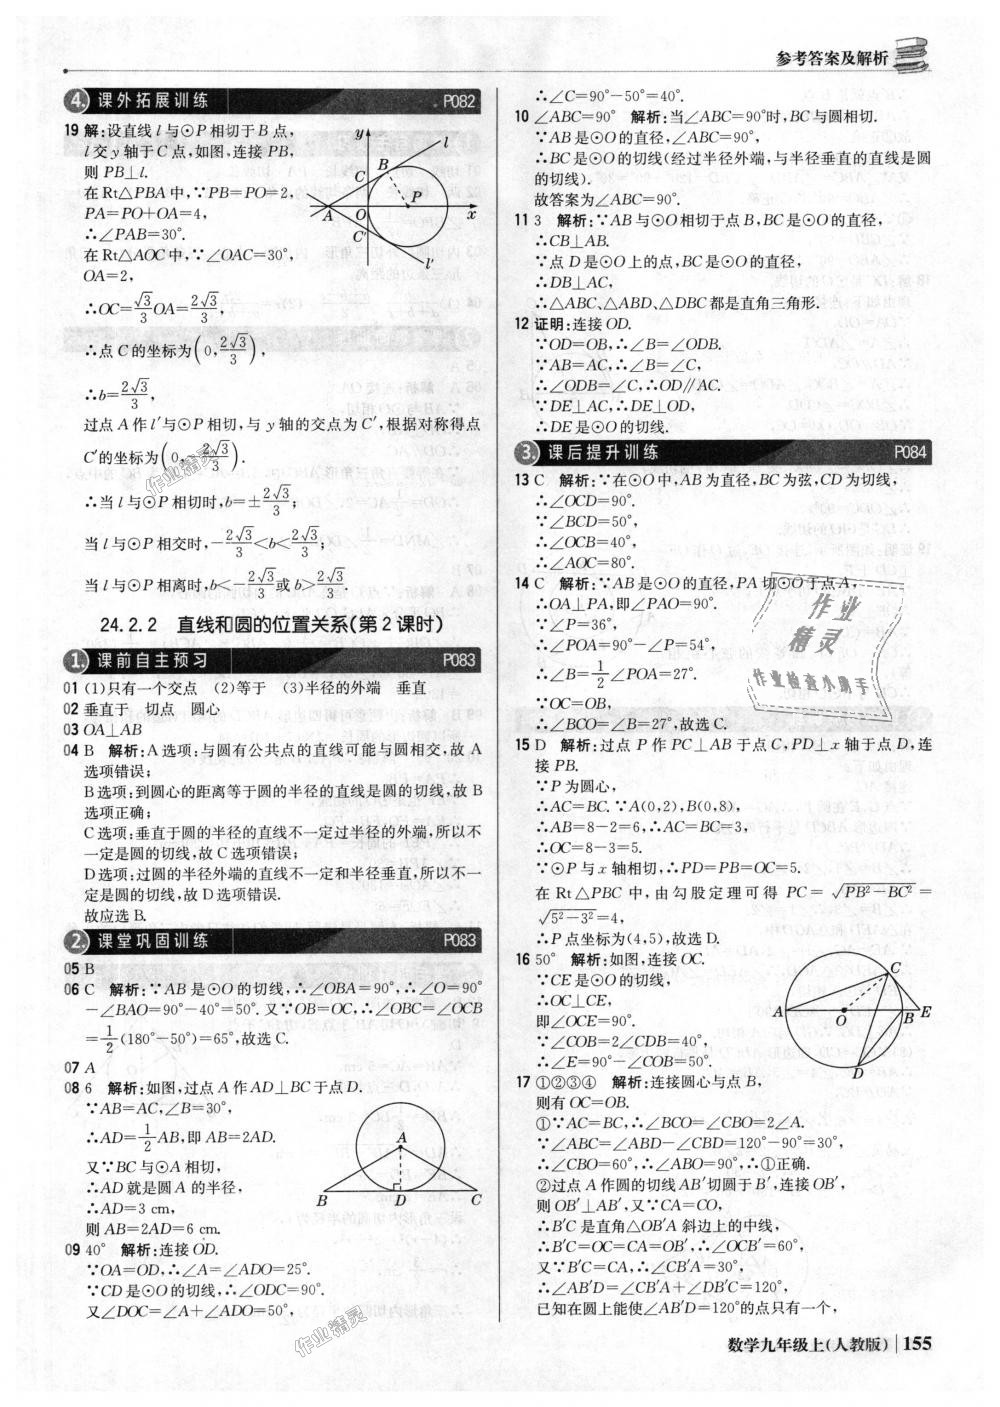 参考答案及解析
4. 课外拓展训练 P082
19 解:设直线 l 与⊙P 相切于 B 点,
l 交 y 轴于 C 点,如图,连接 PB,
则 PB⊥l.
在 Rt△PBA 中,∵PB=PO=2,
PA=PO+OA=4,
∴∠PAB=30°.
在 Rt△AOC 中,∵∠OAC=30°,
OA=2,
∴OC=√3/3 OA=2√3/3,
∴点 C 的坐标为(0,2√3/3),
∴b=2√3/3,
过点 A 作 l′与⊙P 相切,与 y 轴的交点为 C′,根据对称得点
C′的坐标为(0,-2√3/3).
∴当 l 与⊙P 相切时,b=±2√3/3;
当 l 与⊙P 相交时,-2√3/3<b<2√3/3;
当 l 与⊙P 相离时,b<-2√3/3或 b>2√3/3.
y
l
B
C
P
A
O
x
C′
l′
24.2.2 直线和圆的位置关系(第 2 课时)
1. 课前自主预习 P083
01 (1)只有一个交点 (2)等于 (3)半径的外端 垂直
02 垂直于 切点 圆心
03 OA⊥AB
04 B 解析:A 选项:与圆有公共点的直线可能与圆相交,故 A
选项错误;
B 选项:到圆心的距离等于圆的半径的直线是圆的切线,故 B
选项正确;
C 选项:垂直于圆的半径的直线不一定过半径的外端,所以不
一定是圆的切线,故 C 选项错误;
D 选项:过圆的半径外端的直线不一定和半径垂直,所以不一
定是圆的切线,故 D 选项错误.
故应选 B.
2. 课堂巩固训练 P083
05 B
06 C 解析:∵AB 是⊙O 的切线,∴∠OBA=90°,∴∠O=90°
-∠BAO=90°-40°=50°. 又∵OB=OC,∴∠OBC=∠OCB
=1/2(180°-50°)=65°,故选 C.
07 A
08 6 解析:如图,过点 A 作 AD⊥BC 于点 D.
∵AB=AC,∠B=30°,
∴AD=1/2AB,即 AB=2AD.
又∵BC 与⊙A 相切,
∴AD 就是圆 A 的半径,
∴AD=3 cm.
则 AB=2AD=6 cm.
A
B
D
C
09 40° 解析:连接 OD.
∵OA=OD,∴∠A=∠ADO=25°.
∵CD 是⊙O 的切线,∴∠ODC=90°.
又∠DOC=∠A+∠ADO=50°,
∴∠C=90°-50°=40°.
10 ∠ABC=90° 解析:当∠ABC=90°时,BC 与圆相切.
∵AB 是⊙O 的直径,∠ABC=90°,
∴BC 是⊙O 的切线(经过半径外端,与半径垂直的直线是圆
的切线).
故答案为∠ABC=90°.
11 3 解析:∵AB 与⊙O 相切于点 B,BC 是⊙O 的直径,
∴CB⊥AB.
∵点 D 是⊙O 上的点,BC 是⊙O 的直径,
∴DB⊥AC,
∴△ABC、△ABD、△DBC 都是直角三角形.
12 证明:连接 OD.
∵OD=OB,∴∠B=∠ODB.
∵AB=AC,∴∠B=∠C,
∴∠ODB=∠C,∴OD∥AC.
∵DE⊥AC,∴DE⊥OD,
∴DE 是⊙O 的切线.
3. 课后提升训练 P084
13 C 解析:∵在⊙O 中,AB 为直径,BC 为弦,CD 为切线,
∴∠OCD=90°.
∵∠BCD=50°,
∴∠OCB=40°,
∴∠AOC=80°.
14 C 解析:∵AB 是⊙O 的直径,PA 切⊙O 于点 A,
∴OA⊥PA,即∠PAO=90°.
∵∠P=36°,
∴∠POA=90°-∠P=54°,
∴∠B=1/2∠POA=27°.
∵OC=OB,
∴∠BCO=∠B=27°,故选 C.
15 D 解析:过点 P 作 PC⊥AB 于点 C,PD⊥x 轴于点 D,连
接 PB.
∵P 为圆心,
∴AC=BC. ∵A(0,2),B(0,8),
∴AB=8-2=6,∴AC=BC=3,
∴OC=8-3=5.
∵⊙P 与 x 轴相切,∴PD=PB=OC=5.
在 Rt△PBC 中,由勾股定理可得 PC=√(PB²-BC²)=
√(5²-3²)=4,
∴P 点坐标为(4,5),故选 D.
16 50° 解析:如图,连接 OC.
∵CE 是⊙O 的切线,
∴OC⊥CE,
即∠OCE=90°.
∵∠COB=2∠CDB=40°,
∴∠E=90°-∠COB=50°.
C
A
O
B
E
D
17 ①②③④ 解析:连接圆心与点 B,
则有 OC=OB.
①∵AC=BC,∴∠BCO=∠CBO=2∠A.
∵∠ABC=∠ABD-∠CBD=120°-90°=30°,
∴∠CBO=60°,∴∠ABO=90°,∴①正确.
②过点 A 作圆的切线 AB′切圆于 B′,连接 OB′,
则 OB′⊥AB′,又∵CA=CO,
∴B′C 是直角△OB′A 斜边上的中线,
∴B′C=OC=CA=OB′,∴∠OCB′=60°,
又∵B′C=CA,∴∠CB′A=30°,
∴∠AB′D=∠CB′A+∠DB′C=120°,
已知在圆上能使∠AB′D=120°的点只有一个,
作业
精灵
作业检查小助手
作业精灵
作业精灵
数学九年级上(人教版) 155